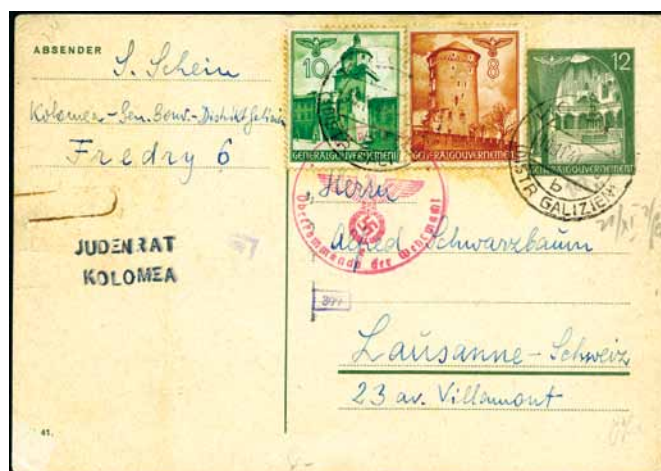 ABSENDER
S. Schein
Kolomea - Gen. Gouv. - Distrikt Galizien
Fredry 6
JUDENRAT
KOLOMEA
41.
10
GENERALGOUVERNEMENT
8
GENERALGOUVERNEMENT
12
GENERALGOUVERNEMENT
b
DISTR GALIZIEN
Oberkommando der Wehrmacht
Herrn
Alfred Schwarzbaum
Lausanne - Schweiz
23 av. Villamont